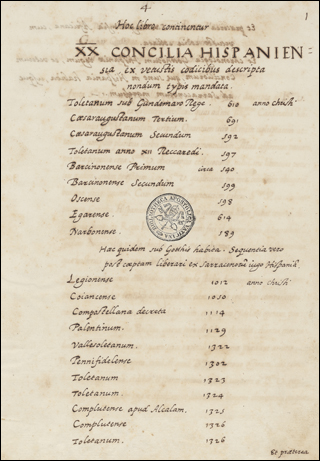 4.
1
Hoc libro continentur
XX CONCILIA HISPANIEN
sia ex vetustis codicibus descripta
nondum typis mandata
Toletanum sub Gundemaro Rege 610 anno Christi
Cæsaraugustanum Tertium. 691
Cæsaraugustanum Secundum 592
Toletanum anno XII Reccaredi. 597
Barcinonense Primum circa 540
Barcinonense Secundum 599
Oscense 598
Egarense. 614
Narbonense. 589
Hæc quidem sub Gothis habita. Sequencia vero
post cœptam liberari ex Sarracenorum iugo Hispaniam
Legionense 1012 anno Christi
Coiancense 1050
Compostellana decreta 1114
Palentinum. 1129
Vallesoletanum. 1322
Pennifidelense 1302
Toletanum 1323
Toletanum. 1324
Complutense apud Alcalam. 1325
Complutense 1326
Toletanum. 1326
Et præterea